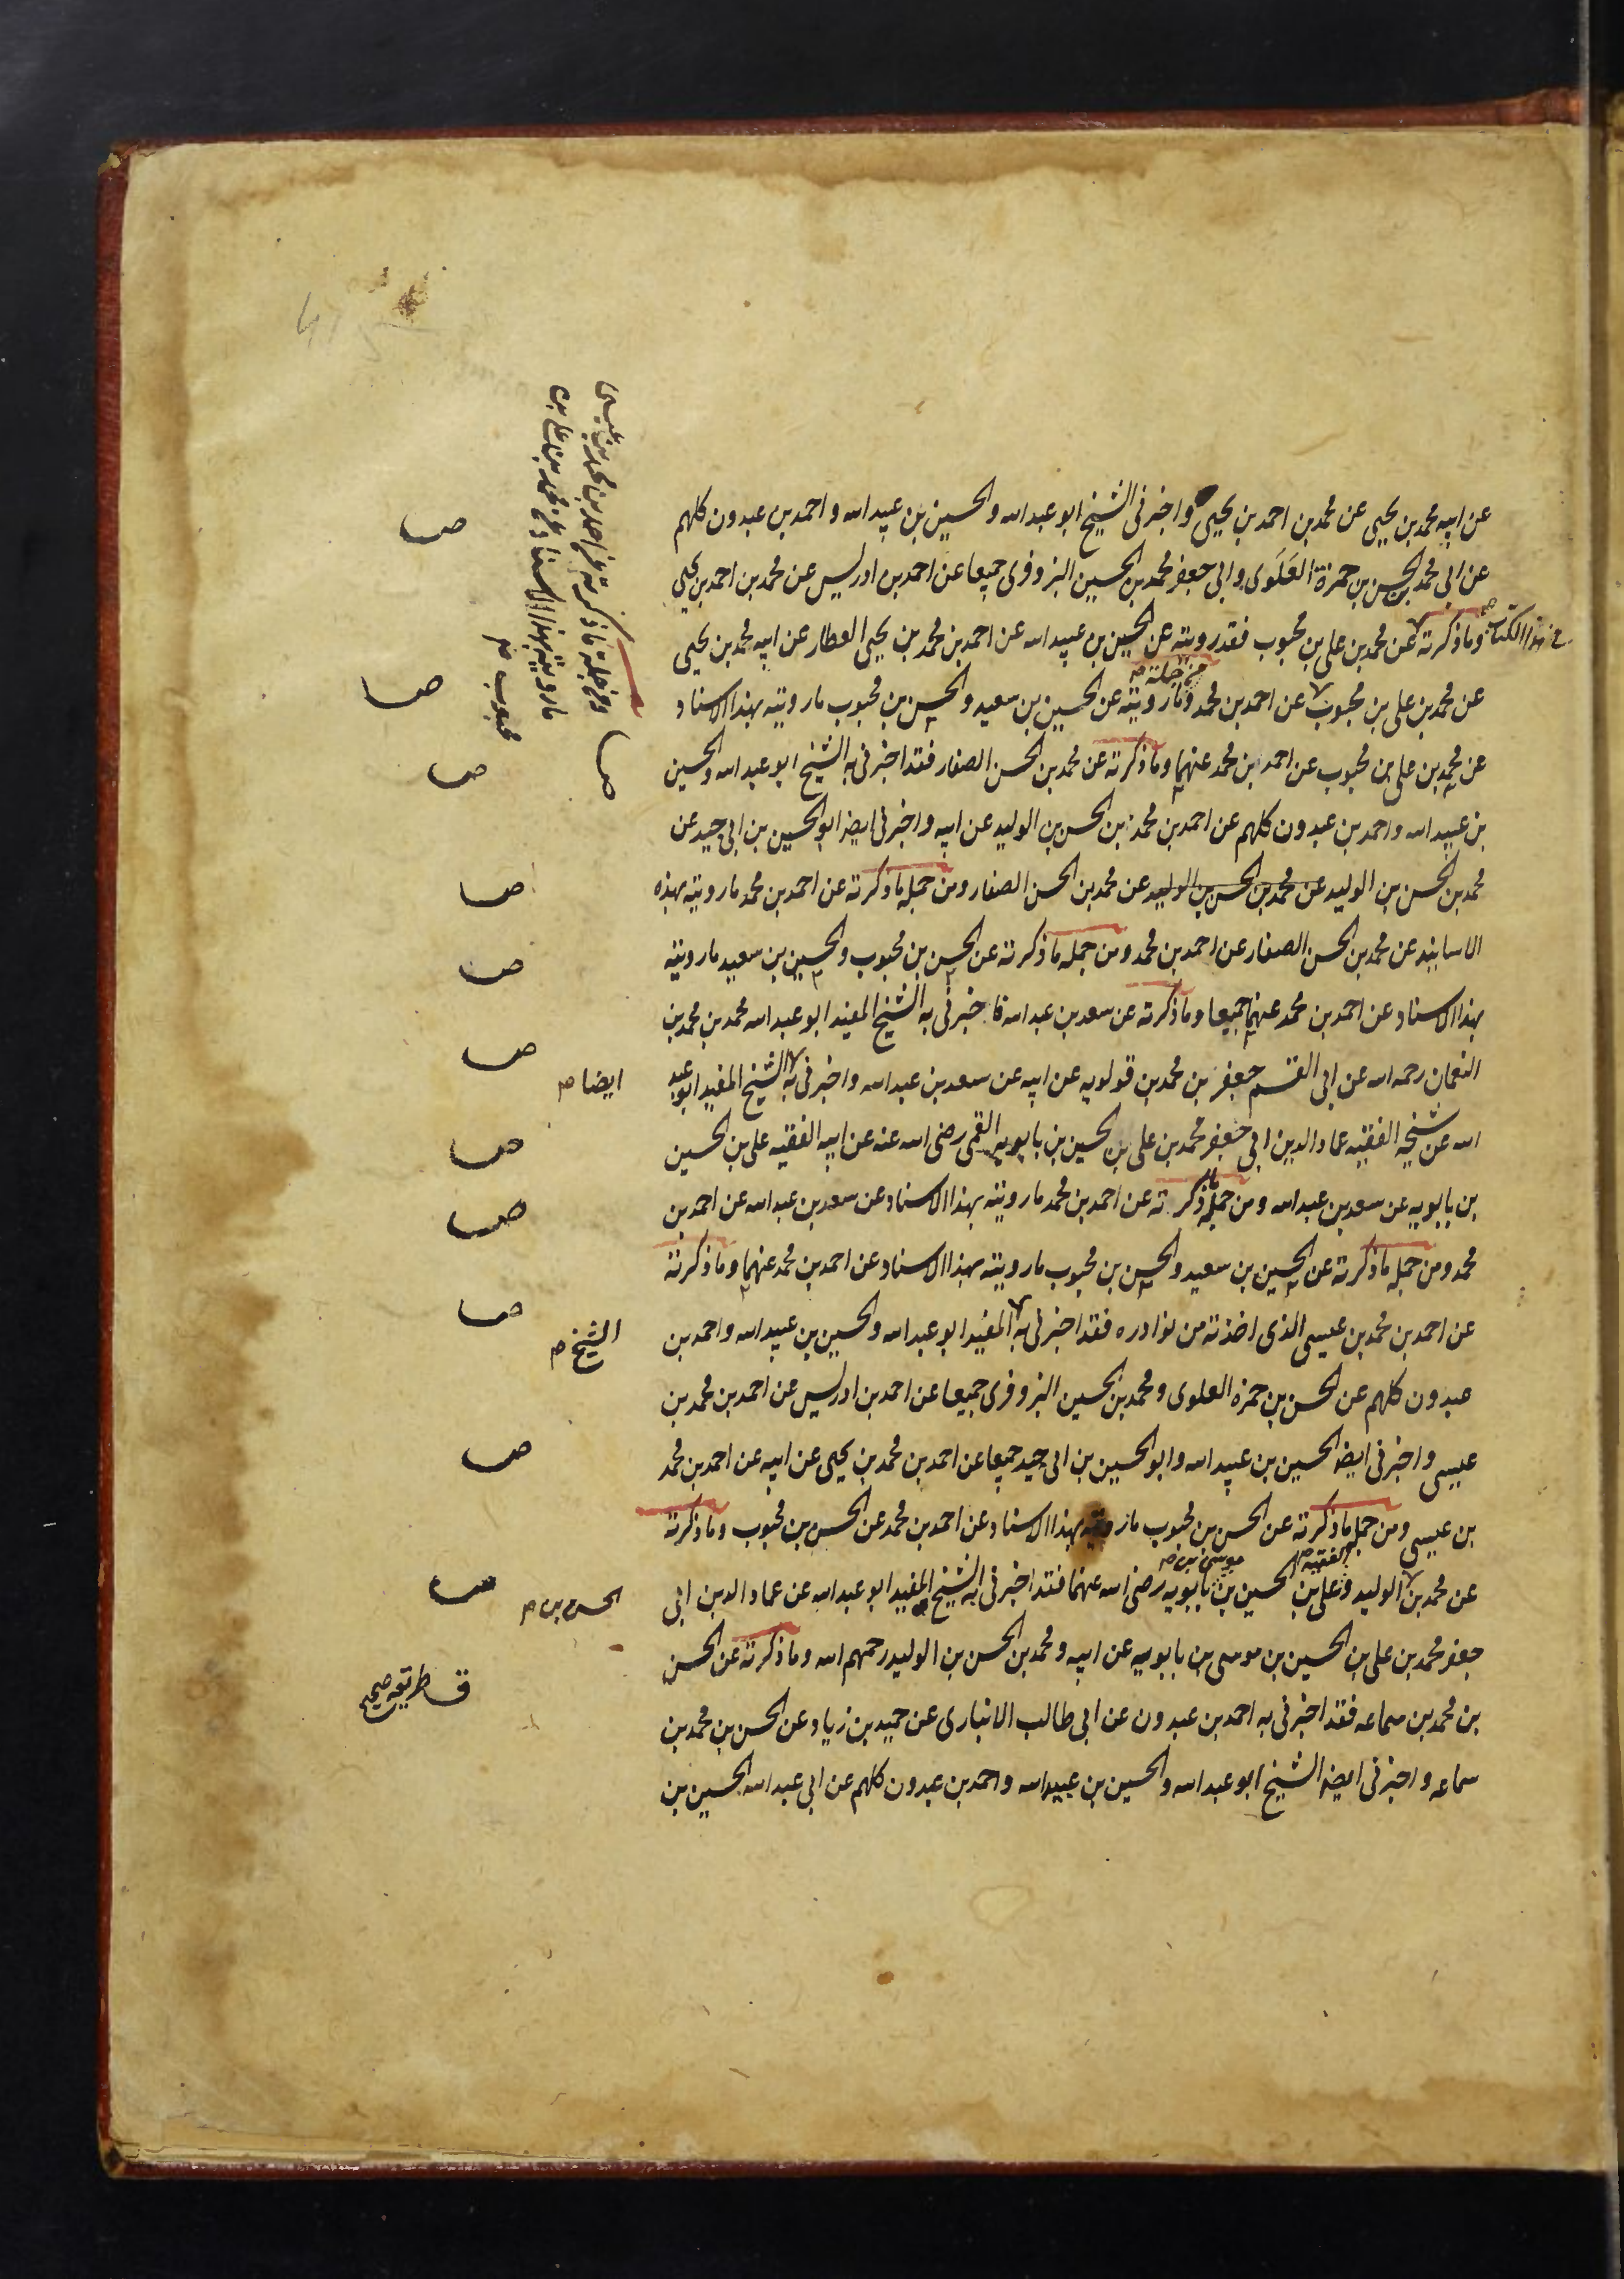 عن ابيه محمد بن يحيى عن محمد بن احمد بن يحيى واخبرنى الشيخ ابو عبد الله والحسين بن عبيد الله و احمد بن عبدون كلهم
عن ابى محمد الحسن بن حمزة العَلَوى وابى جعفر محمد بن الحسين البزوفرى جميعا عن احمد بن ادريس عن محمد بن احمد بن يحيى
فى هذا الكتاب
وما ذكرته عن محمد بن على بن محبوب فقد رويته عن الحسين بن عبيد الله عن احمد بن محمد بن يحيى العطار عن ابيه محمد بن يحيى
من جملته
عن محمد بن على بن محبوب عن احمد بن محمد وما رويته عن الحسين بن سعيد والحسن بن محبوب ما رويته بهذا الاسناد
عن محمد بن على بن محبوب عن احمد بن محمد عنهما وما ذكرته عن محمد بن الحسن الصفار فقد اخبرنى به الشيخ ابو عبد الله والحسين
بن عبيد الله واحمد بن عبدون كلهم عن احمد بن محمد بن الحسن بن الوليد عن ابيه واخبرنى ايضا ابو الحسين بن ابى جيد عن
محمد بن الحسن بن الوليد عن محمد بن الحسن بن الوليد عن محمد بن الحسن الصفار ومن جمله ما ذكرته عن احمد بن محمد ما رويته بهذه
الاسانيد عن محمد بن الحسن الصفار عن احمد بن محمد ومن جمله ما ذكرته عن الحسن بن محبوب والحسين بن سعيد ما رويته
بهذا الاسناد عن احمد بن محمد عنهما جميعا وما ذكرته عن سعد بن عبد الله فاخبرنى به الشيخ المفيد ابو عبد الله محمد بن محمد بن
النعمان رحمه الله عن ابى القسم جعفر بن محمد بن قولويه عن ابيه عن سعد بن عبد الله واخبرنى به الشيخ المفيد ابو عبد
ايضا
الله عن شيخه الفقيه عماد الدين ابى جعفر محمد بن على بن الحسين بن بابويه القمى رضى الله عنه عن ابيه الفقيه على بن الحسين
بن بابويه عن سعد بن عبد الله ومن جمله ما ذكرته عن احمد بن محمد ما رويته بهذا الاسناد عن سعد بن عبد الله عن احمد بن
محمد ومن جمله ما ذكرته عن الحسين بن سعيد والحسن بن محبوب ما رويته بهذا الاسناد عن احمد بن محمد عنهما وما ذكرته
عن احمد بن محمد بن عيسى الذى اخذته من نوادره فقد اخبرنى به المفيد ابو عبد الله والحسين بن عبيد الله واحمد بن
الشيخ
عبدون كلهم عن الحسن بن حمزه العلوى ومحمد بن الحسين البزوفرى جميعا عن احمد بن ادريس عن احمد بن محمد بن
عيسى واخبرنى ايضا الحسين بن عبيد الله وابو الحسين بن ابى جيد جميعا عن احمد بن محمد بن يحيى عن ابيه عن احمد بن محمد
بن عيسى ومن جمله ما ذكرته عن الحسن بن محبوب ما رويته بهذا الاسناد عن احمد بن محمد عن الحسن بن محبوب وما ذكرته
الفقيه
موسى بن
عن محمد بن الوليد وعلى بن الحسين بن بابويه رضى الله عنهما فقد اخبرنى به الشيخ المفيد ابو عبد الله عن عماد الدين ابى
الحسن بن
جعفر محمد بن على بن الحسين بن موسى بن بابويه عن ابيه ومحمد بن الحسن بن الوليد رحمهم الله وما ذكرته عن الحسن
بن محمد بن سماعه فقد اخبرنى به احمد بن عبدون عن ابى طالب الانبارى عن حميد بن زياد عن الحسن بن محمد بن
سماعه واخبرنى ايضا الشيخ ابو عبد الله والحسين بن عبيد الله واحمد بن عبدون كلهم عن ابى عبد الله الحسين بن
ومن جملة ما ذكرته عن احمد بن محمد بن عيسى
ما رويته بهذا الاسناد عن محمد بن على بن
محبوب